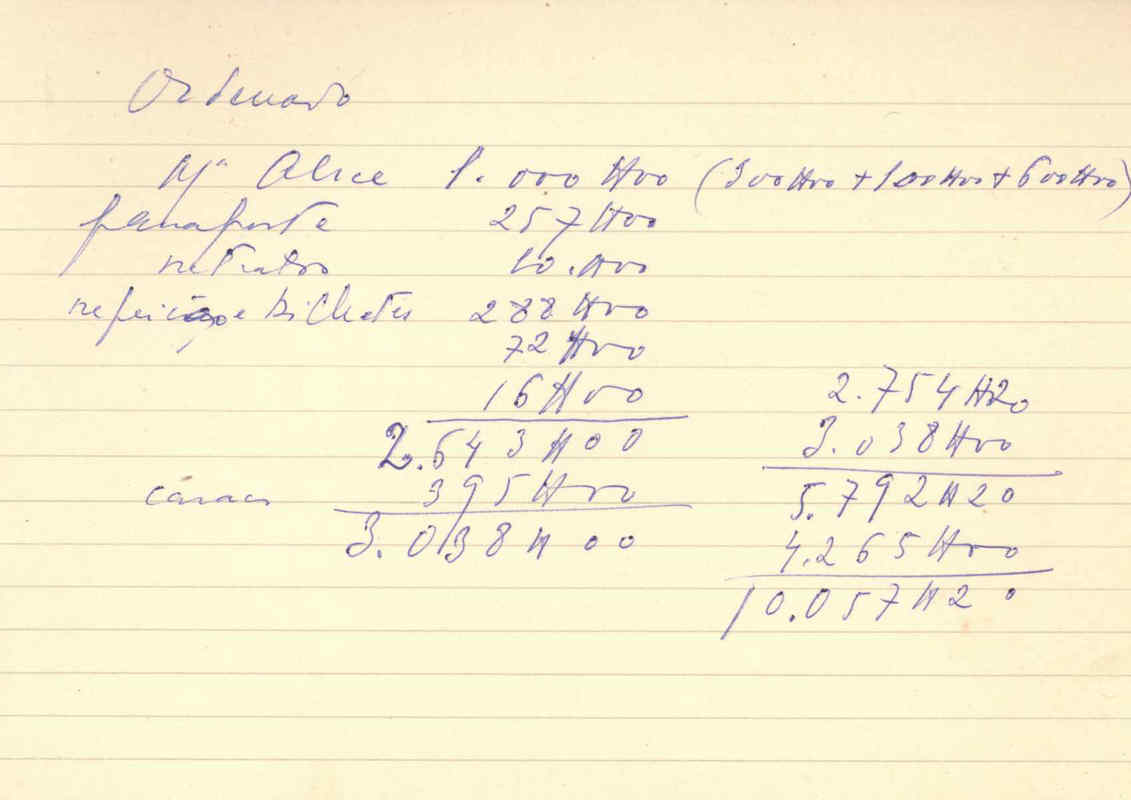 Ordenado
Mª Alice 1.000$00 (300$00 + 100$00 + 600$00)
passaporte 257$00
retratos 10.$00
refeição e bilhetes 288$00
72$00
16$00
2.643$00
395$00
3.038$00
2.754$20
3.038$00
5.792$20
4.265$00
10.057$20